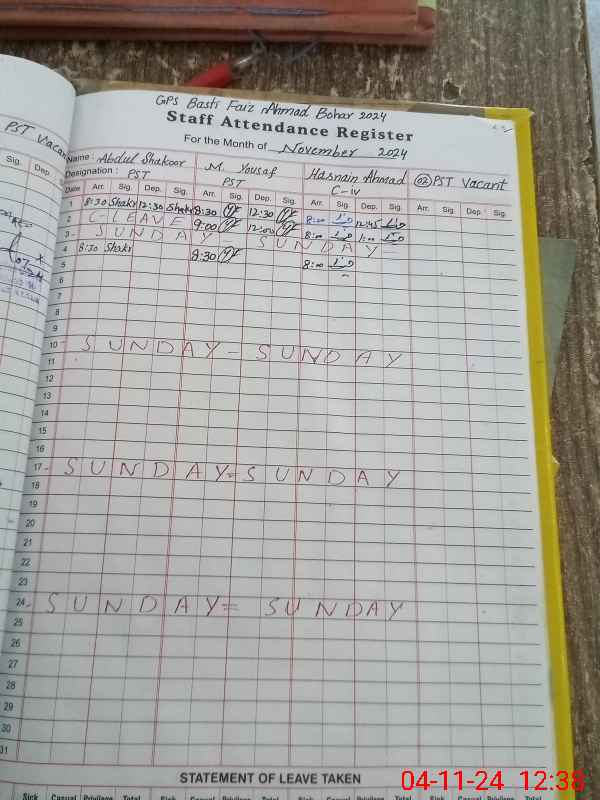 GPS Basti Faiz Ahmad Bohar 2024
Staff Attendance Register
For the Month of November 2024
PST Vacant
Sig. Dep.
Name: Abdul Shakoor M. Yousaf Hasnain Ahmad 02 PST Vacant
Designation: PST PST C-IV
Date Arr. Sig. Dep. Sig. Arr. Sig. Dep. Sig. Arr. Sig. Dep. Sig. Arr. Sig. Dep. Sig.
1 8:30 Shakr 12:30 Shakr 8:30 12:30 8:00 12:45
2 C-LEAVE 9:00 12:00 8:00 1:00
3 - SUNDAY SUNDAY -
4 8:30 Shakr 8:30 8:00
5
6
7
8
9
10 - SUNDAY - SUNDAY
11
12
13
14
15
16
17 - SUNDAY = SUNDAY
18
19
20
21
22
23
24 - SUNDAY = SUNDAY
25
26
27
28
29
30
31
STATEMENT OF LEAVE TAKEN
Sick Casual Privilege Total Sick Casual Privilege Total Sick Casual Privilege
04-11-24 12:38